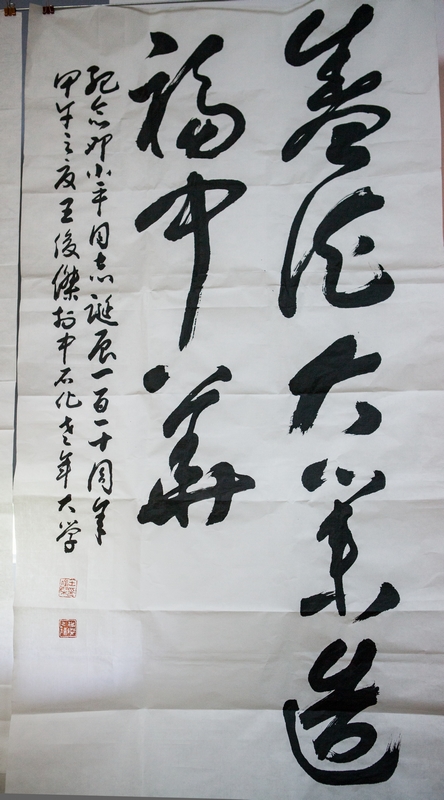 盛德大業造
福中華
紀念邓小平同志誕辰一百一十周年
甲午之夏王俊傑於中石化老年大学